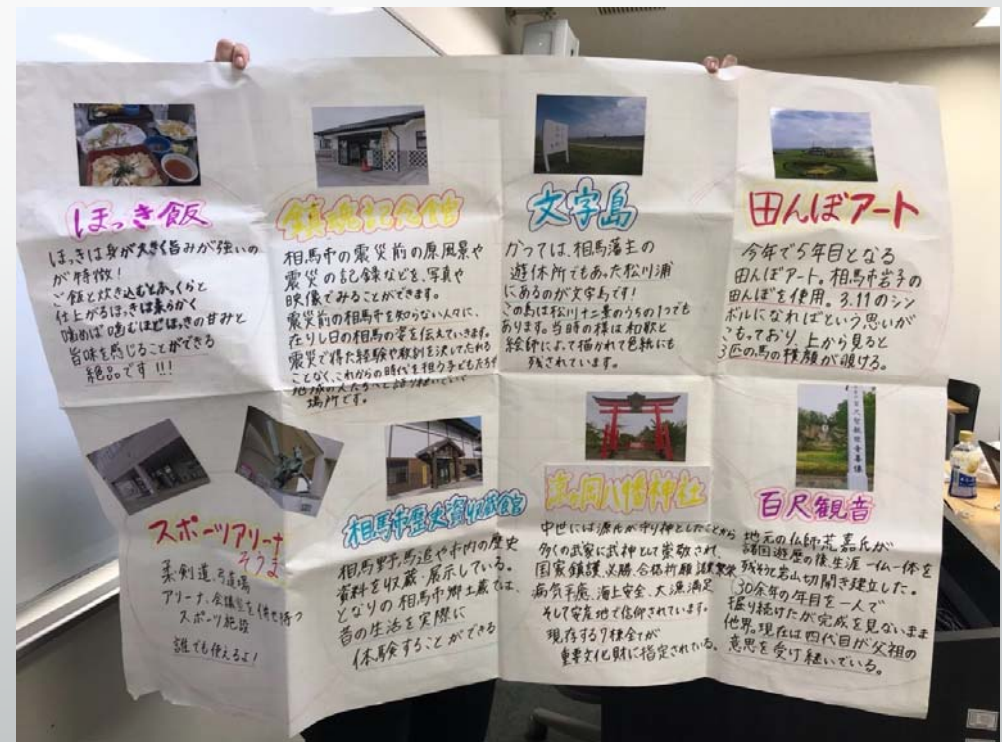 ほっき飯
ほっきは身が大きく旨みが強いの
が特徴！
ご飯と炊き込むとふっくらと
仕上がるほっきは柔らかく
噛めば噛むほどほっきの甘みと
旨味を感じることができる
絶品です!!!
鎮魂記念館
相馬市の震災前の原風景や
震災の記録などを、写真や
映像でみることができます。
震災前の相馬市を知らない人々に、
在りし日の相馬の姿を伝えていきます。
震災で得た経験や教訓を決して忘れる
ことなく、これからの時代を担う子どもたちや
地域の人たちへと語り継いでいく
場所です。
文字島
かつては、相馬藩主の
遊休所でもあった松川浦
にあるのが文字島です！
この島は松川十二景のうちの1つでも
あります。当時の様は和歌と
絵師によって描かれて色紙にも
残されています。
田んぼアート
今年で5年目となる
田んぼアート。相馬市岩子の
田んぼを使用。3.11のシン
ボルになればという思いが
こもっており、上から見ると
3匹の馬の横顔が覗ける。
スポーツアリーナ
そうま
柔剣道、弓道場
アリーナ、会議室を併せ持つ
スポーツ施設
誰でも使えるよ！
相馬市歴史資収蔵館
相馬野馬追や市内の歴史
資料を収蔵・展示している。
となりの相馬市郷土蔵では、
昔の生活を実際に
体験することができる
八幡神社
中世には源氏が守り神としたことから
多くの武家に武神として崇敬され、
国家鎮護、必勝、合格祈願、諸業繁栄
病気平癒、海上安全、大漁満足
そして安産地で信仰されています。
現存する7棟全てが
重要文化財に指定されている。
百尺観音
地元の仏師荒嘉氏が
諸国遊歴の後、生涯一仏一体を
残そうと岩山切開き建立した。
30余年の年月を一人で
掘り続けたが完成を見ないまま
他界。現在は四代目が父祖の
意思を受け継いでいる。